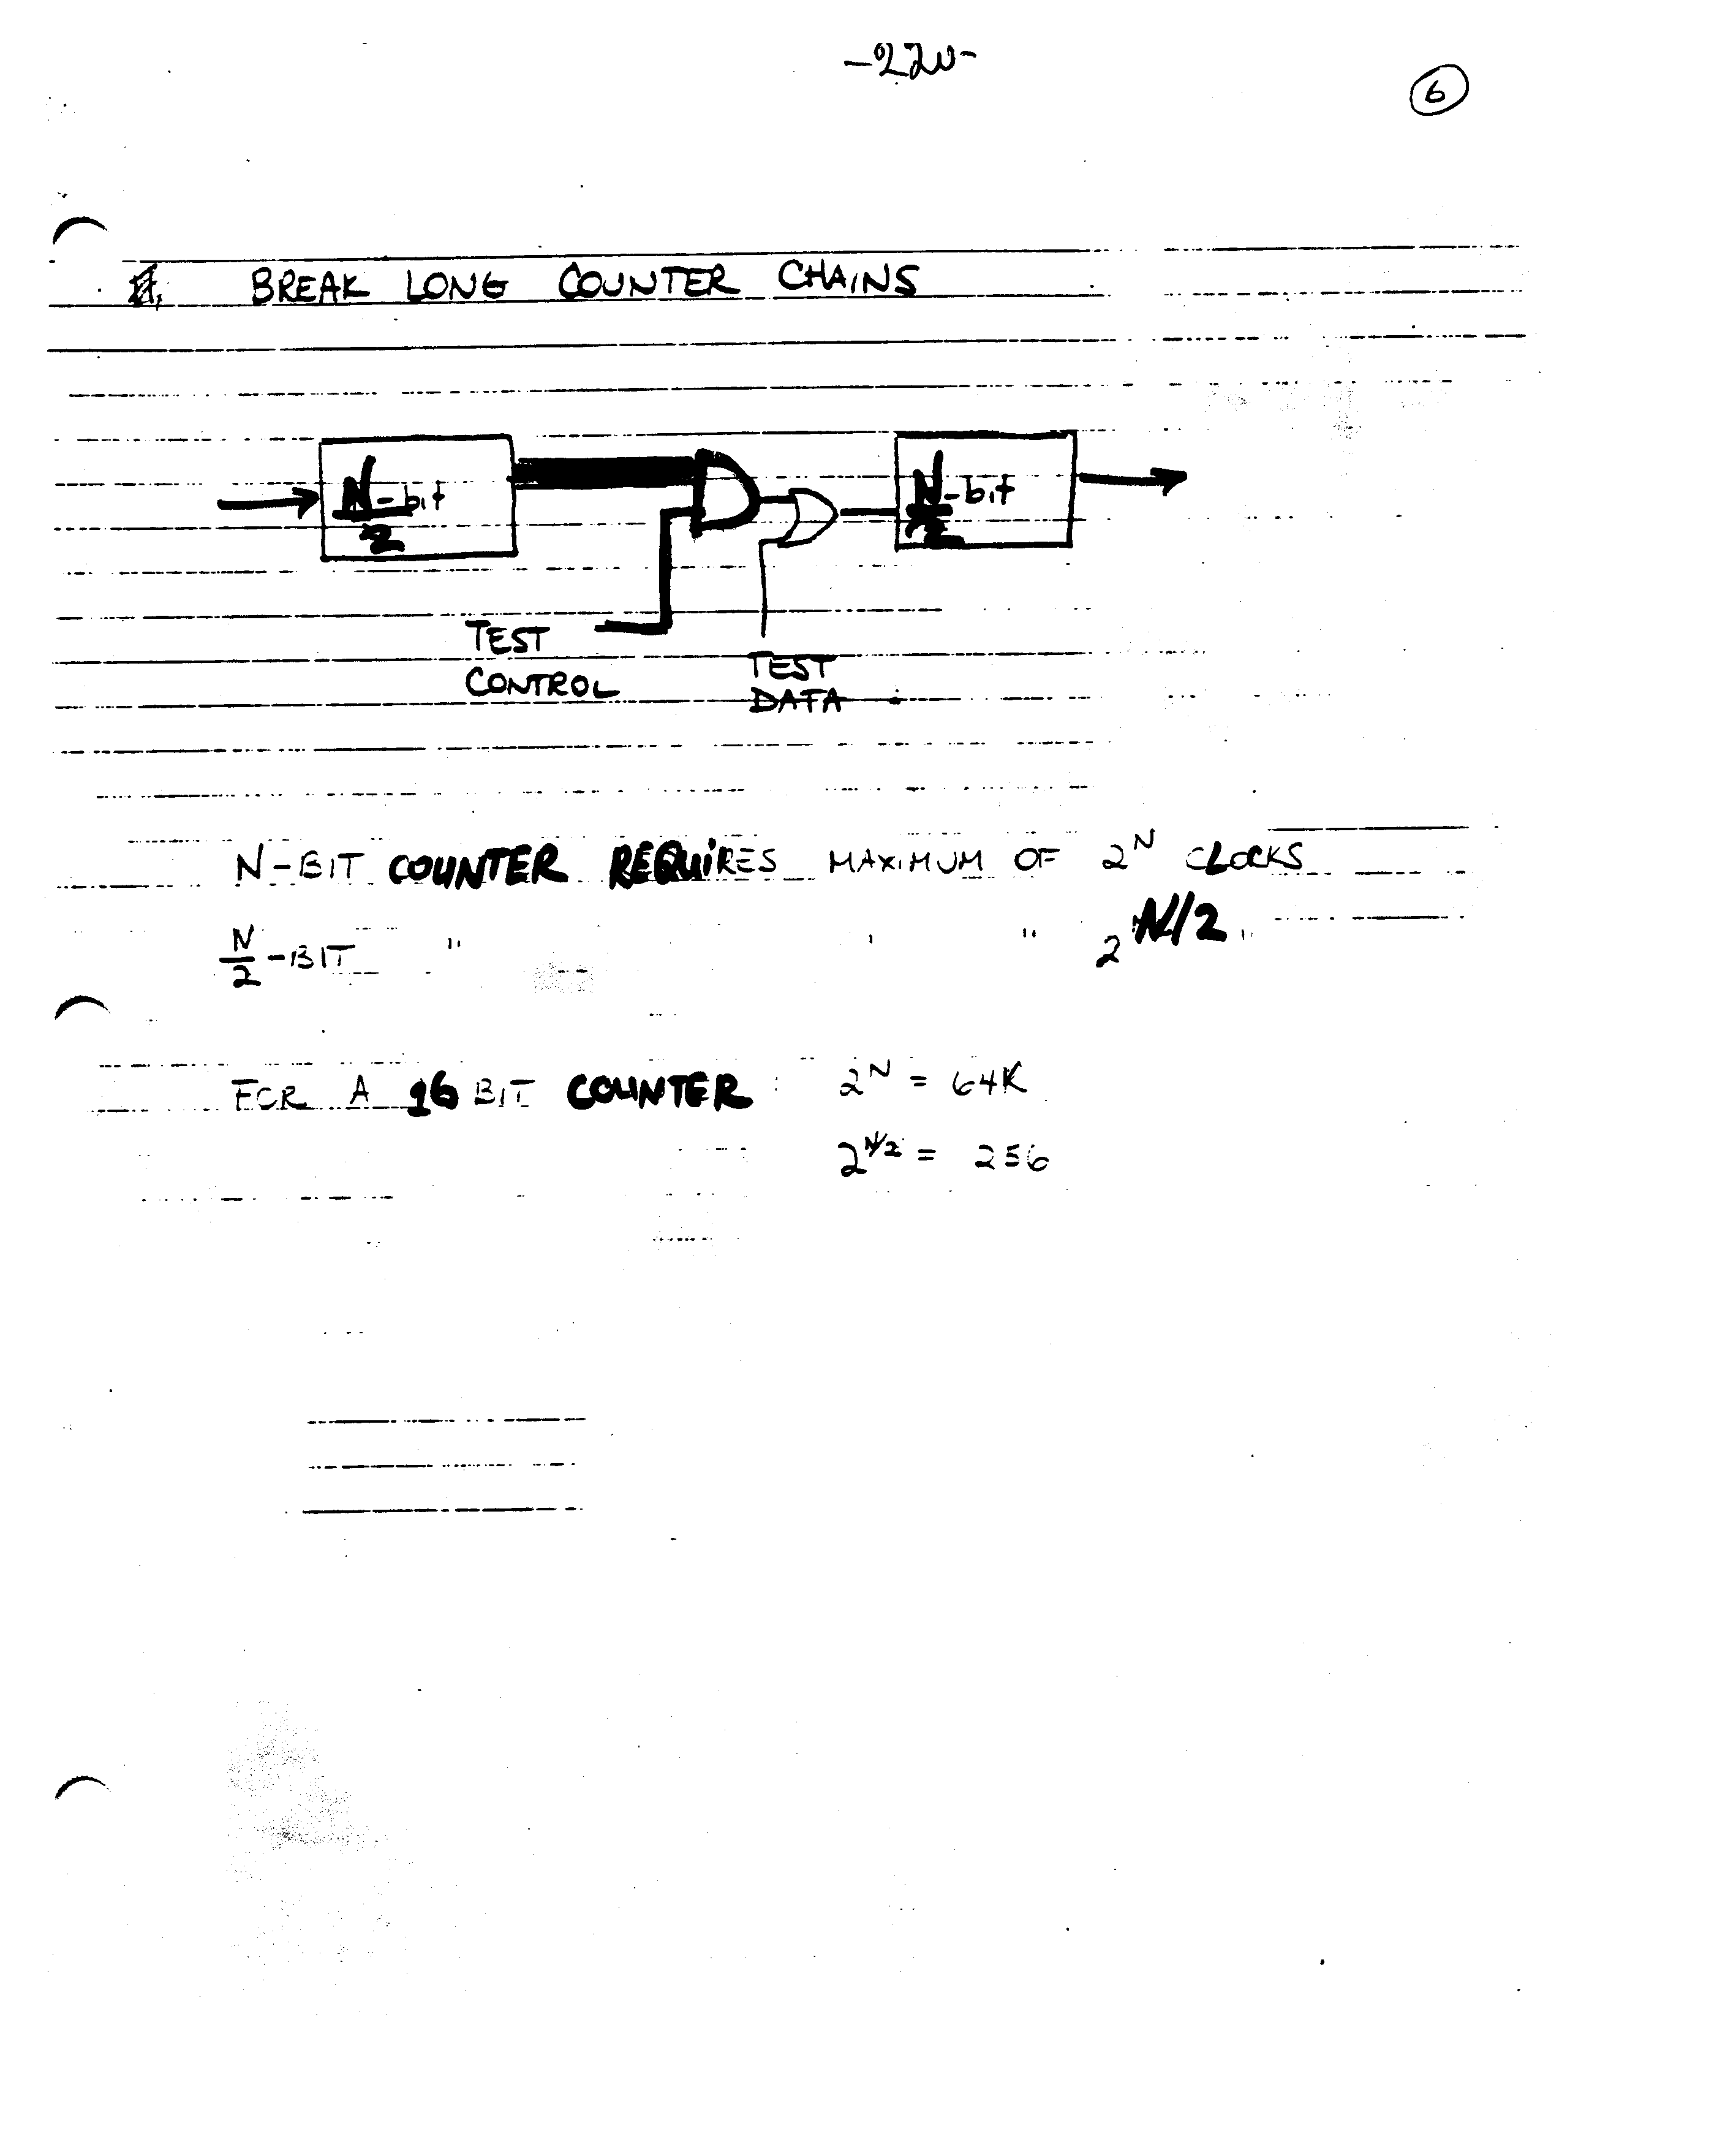 -220-
6
BREAK LONG COUNTER CHAINS
N/2-bit
N/2-bit
TEST
CONTROL
TEST
DATA
N-BIT COUNTER REQUIRES MAXIMUM OF 2^N CLOCKS
N/2-BIT " " " 2^N/2 "
FOR A 16 BIT COUNTER: 2^N = 64K
2^N/2 = 256